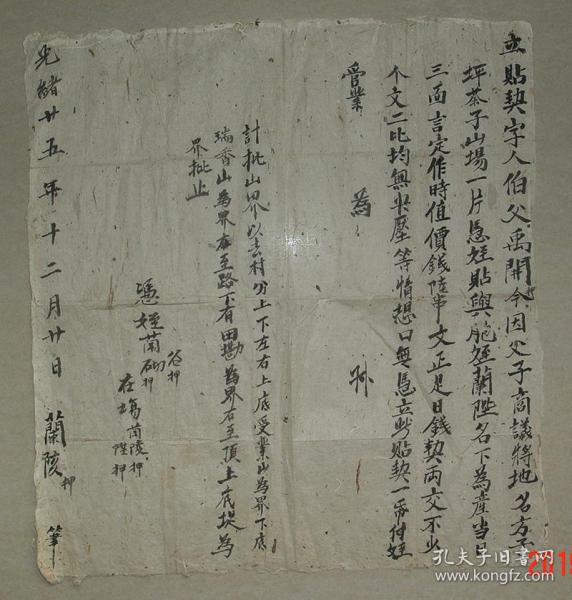 立貼契字人伯父禹開今因父子商議將地名方
坪茶子山場一片憑姪貼與胞姪蘭陛名下為產當日
三面言定作時值價錢陸串文正是日錢契兩交不少
个文二比均無坐壓等情想口無憑立此貼契一帋付姪
管業 為 㸃
計批山界以去村分上下左右上底受業山為界下底
瑞香山為界左至路下有田墈為界右至頂上底墈為
界批止
憑姪蘭砌押
谷押
在塲蘭陵押
陛押
光緒廿五年十二月廿日 蘭陵押 筆
孔夫子旧书网
www.kongfz.com